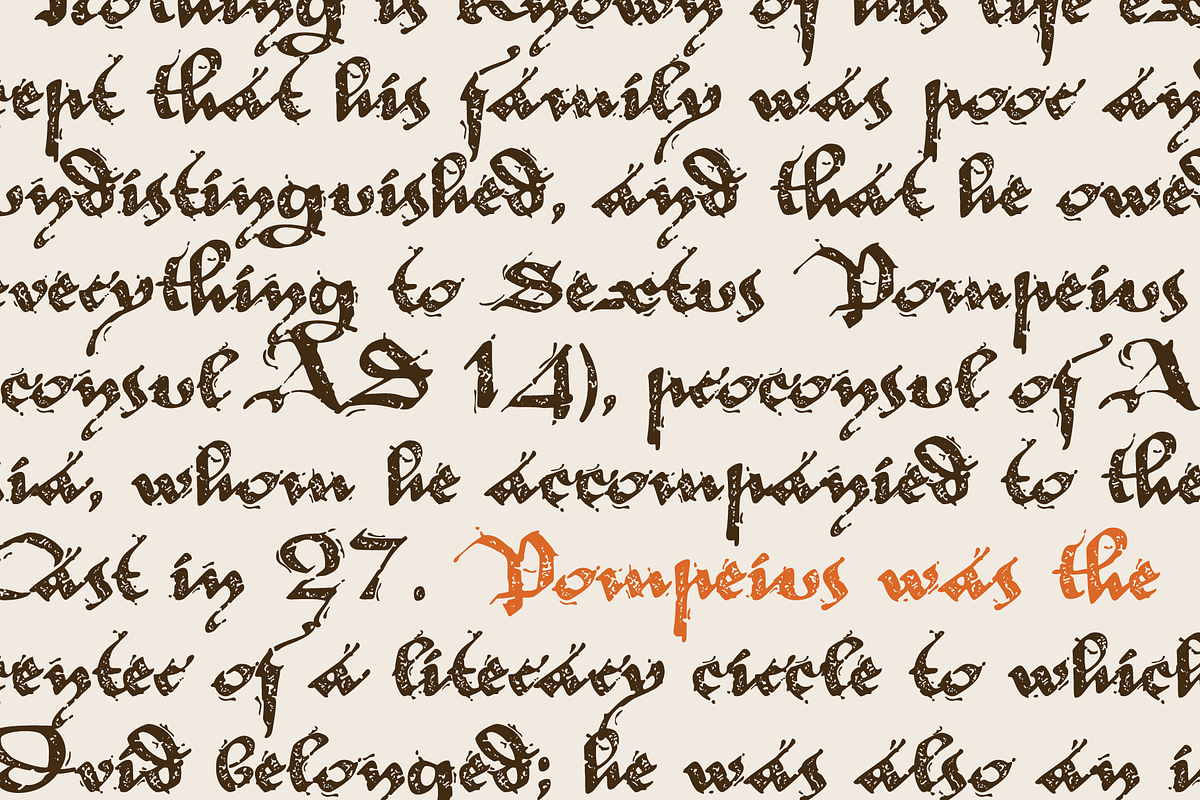 Nothing is known of his life ex
cept that his family was poor an
undistinguished, and that he owed
everything to Sextus Pompeius
consul AD 14), proconsul of A
sia, whom he accompanied to the
East in 27. Pompeius was the
center of a literary circle to which
Ovid belonged; he was also an i